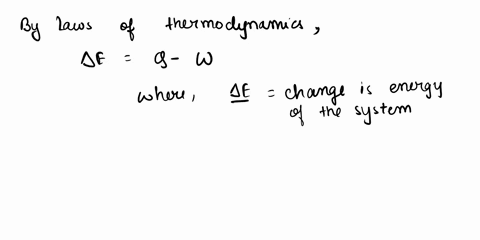 By laws of thermodynamics,
ΔE = Q - W
where, ΔE = change is energy
of the system